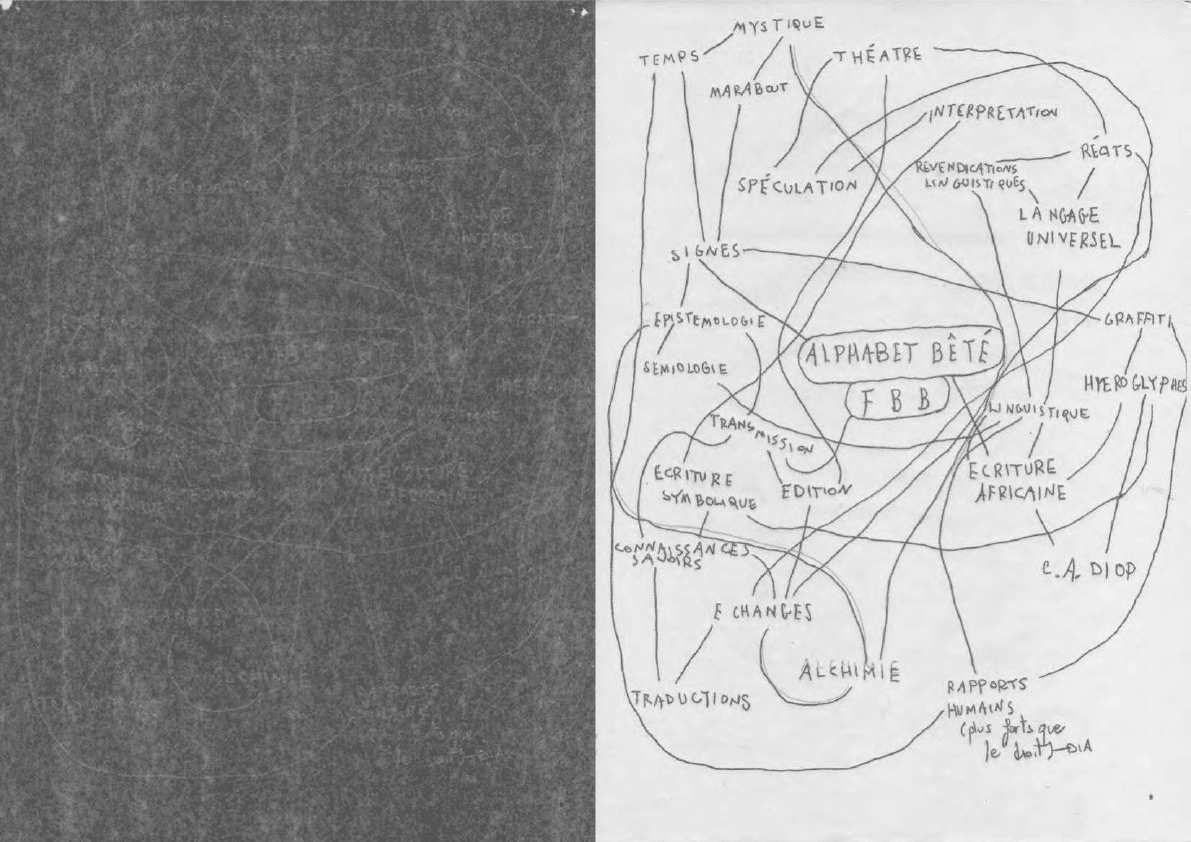 MYSTIQUE
TEMPS
THÉATRE
MARABOUT
INTERPRETATION
RÉCITS
REVENDICATIONS
LINGUISTIQUES
SPÉCULATION
LANGAGE
UNIVERSEL
SIGNES
EPISTEMOLOGIE
GRAFFITI
ALPHABET BÊTÉ
SEMIOLOGIE
HYEROGLYPHES
F B B
LINGUISTIQUE
TRANSMISSION
ECRITURE
SYMBOLIQUE
EDITION
ECRITURE
AFRICAINE
CONNAISSANCES
SAVOIRS
C.A. DIOP
ECHANGES
ALCHIMIE
TRADUCTIONS
RAPPORTS
HUMAINS
(plus forts que
le droit)—DIA